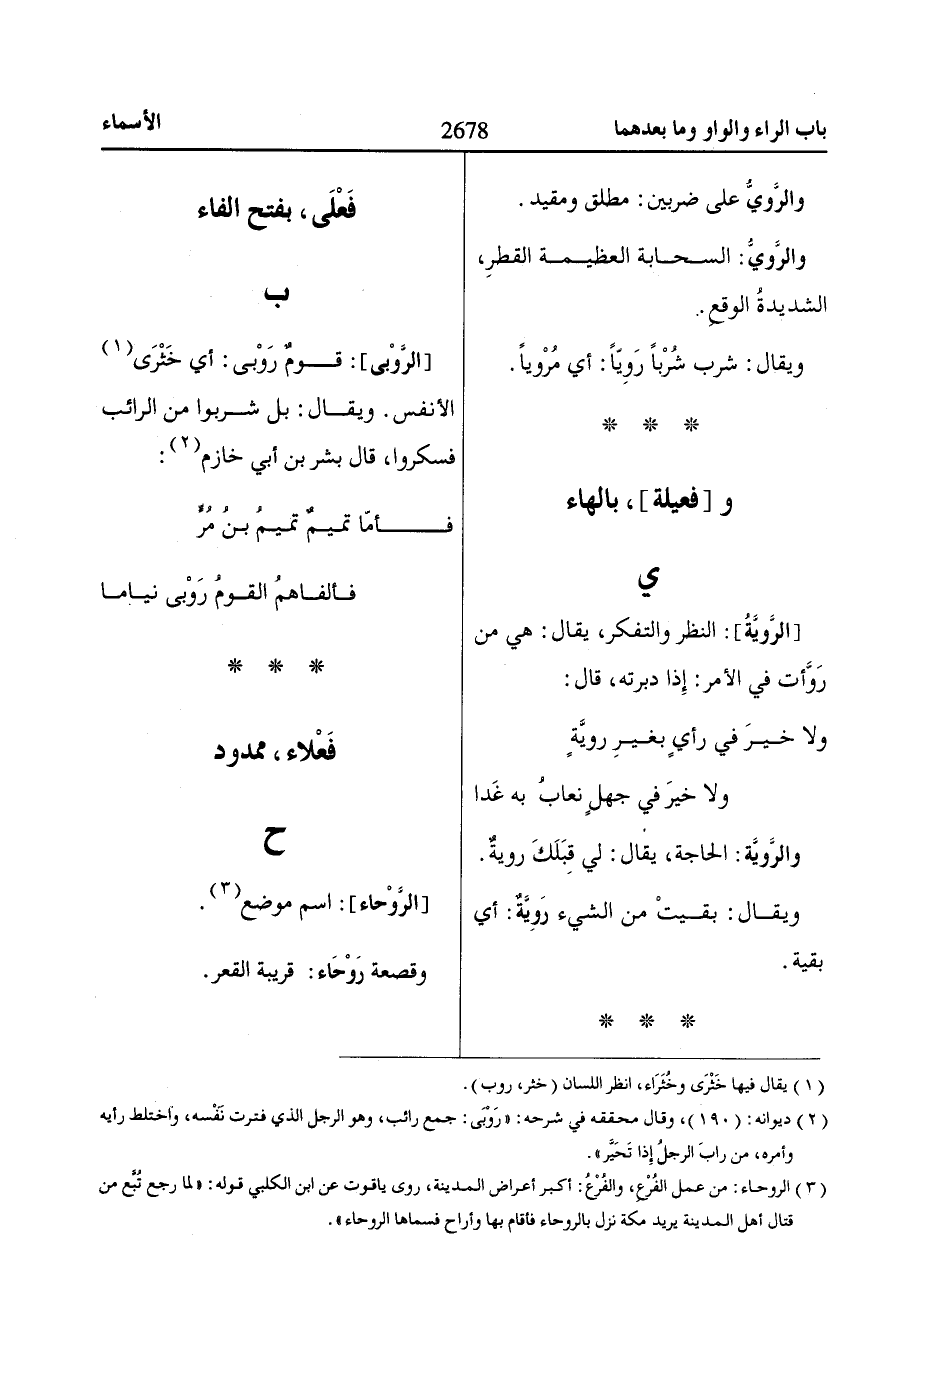 باب الراء والواو وما بعدهما 2678 الأسماء
والرَّويُّ على ضربين: مطلق ومقيد.
والرَّويُّ: السـحـابة العظيمـة القطرِ،
الشديدةُ الوقعِ.
ويقال: شرب شُرْباً رَوِيّاً: أي مُرْوِياً.
* * *
و [فعيلة]، بالهاء
ي
[الرَّوِيَّةُ]: النظر والتفكر، يقال: هي من
رَوَّأت في الأمر: إذا دبرته، قال:
ولا خيرَ في رأيٍ بغيرِ رويَّةٍ
ولا خيرَ في جهلٍ نعابُ به غَدا
والرَّوِيَّة: الحاجة، يقال: لي قِبَلَكَ رويةٌ.
ويقال: بقيتْ من الشيء رَوِيَّةٌ: أي
بقية.
* * *
فَعْلَى، بفتح الفاء
ب
[الرَّوْبى]: قومٌ رَوْبى: أي خَثْرَى(١)
الأنفس. ويقال: بل شربوا من الرائب
فسكروا، قال بشر بن أبي خازم(٢):
فأمّا تميمٌ تميمُ بنُ مُرٍّ
فألفاهمُ القومُ رَوْبى نياما
* * *
فَعْلاء، ممدود
ح
[الرَّوْحاء]: اسم موضع(٣).
وقصعة رَوْحَاء: قريبة القعر.
(١) يقال فيها خَثْرَى وخُثَرَاء، انظر اللسان (خثر، روب).
(٢) ديوانه: (١٩٠)، وقال محققه في شرحه: «رَوْبَى: جمع رائب، وهو الرجل الذي فترت نَفْسه، واختلط رأيه
وأمره، من رابَ الرجلُ إذا تَحَيَّر».
(٣) الروحاء: من عمل الفُرْعِ، والفُرْعُ: أكبر أعراض المدينة، روى ياقوت عن ابن الكلبي قوله: «لما رجع تُبَّع من
قتال أهل المدينة يريد مكة نزل بالروحاء فأقام بها وأراح فسماها الروحاء».